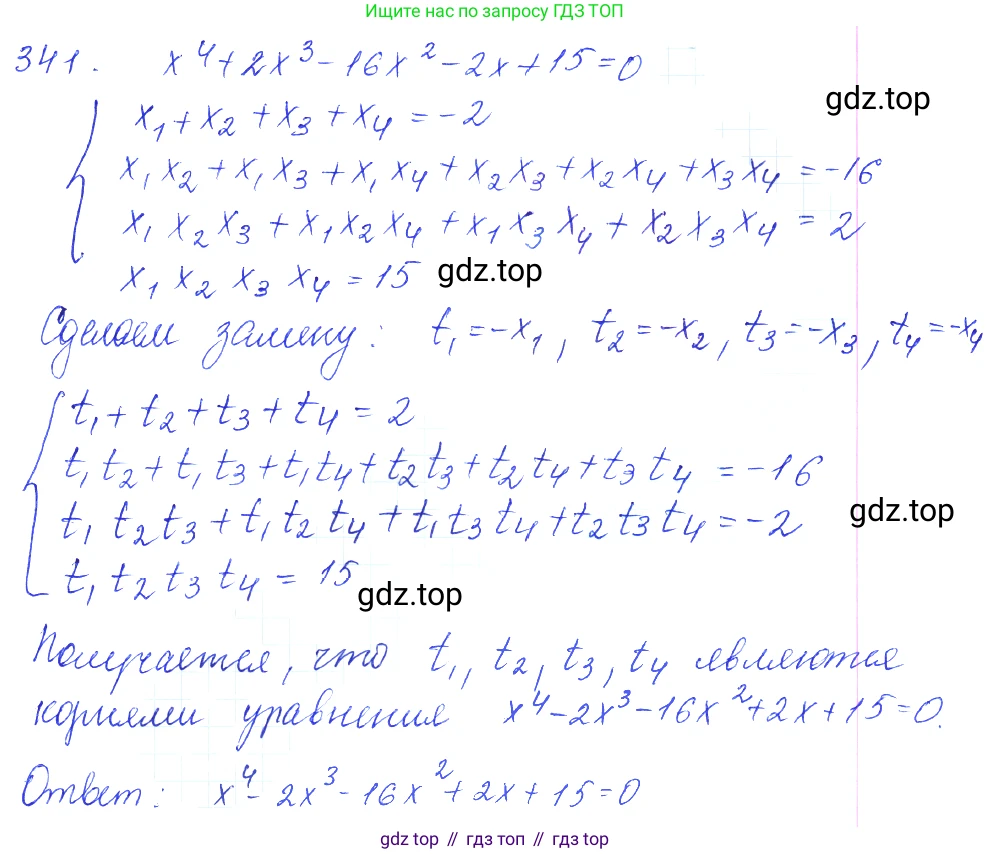 Ищите нас по запросу ГДЗ ТОП
341. x⁴+2x³-16x²-2x+15=0
gdz.top
x₁+x₂+x₃+x₄=-2
x₁x₂+x₁x₃+x₁x₄+x₂x₃+x₂x₄+x₃x₄=-16
x₁x₂x₃+x₁x₂x₄+x₁x₃x₄+x₂x₃x₄=2
x₁x₂x₃x₄=15
gdz.top
Сделаем замену: t₁=-x₁, t₂=-x₂, t₃=-x₃, t₄=-x₄
t₁+t₂+t₃+t₄=2
t₁t₂+t₁t₃+t₁t₄+t₂t₃+t₂t₄+t₃t₄=-16
t₁t₂t₃+t₁t₂t₄+t₁t₃t₄+t₂t₃t₄=-2
gdz.top
t₁t₂t₃t₄=15
gdz.top
Получается, что t₁, t₂, t₃, t₄ являются
корнями уравнения x⁴-2x³-16x²+2x+15=0.
Ответ: x⁴-2x³-16x²+2x+15=0
gdz top // гдз топ // гдз top